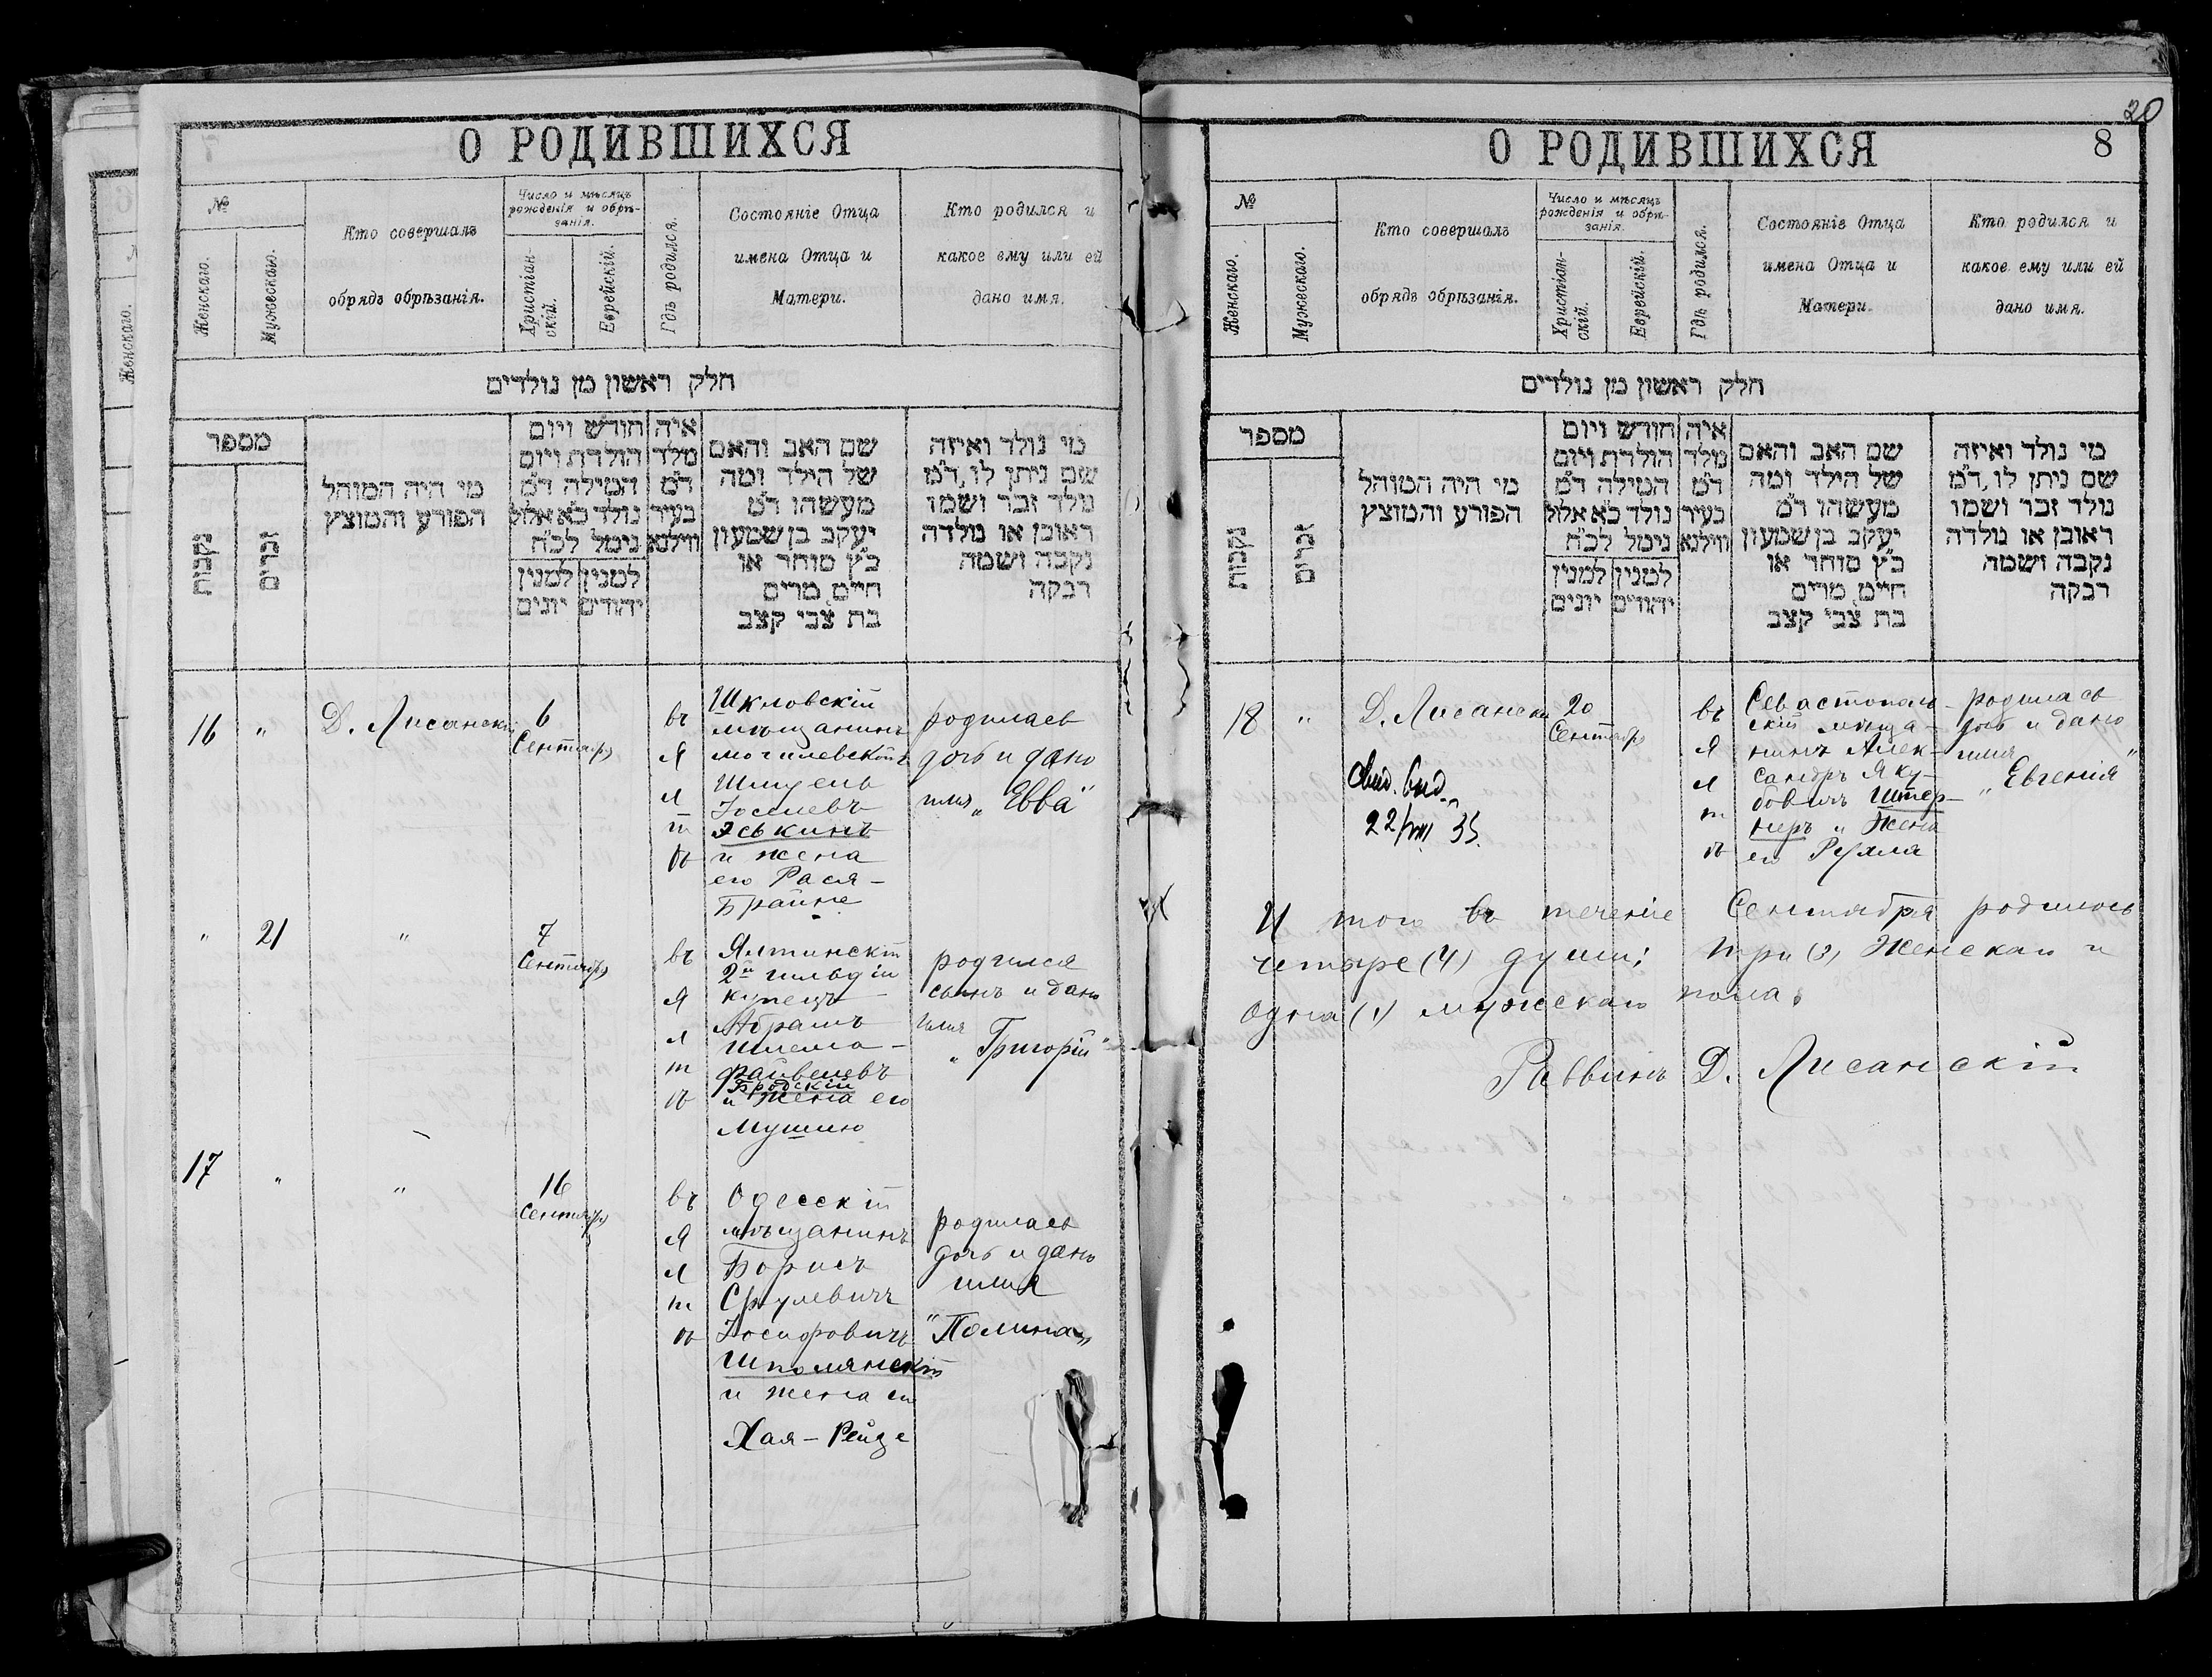 О РОДИВШИХСЯ
№
Женскаго.
Мужескаго.
Кто совершалъ
обрядъ обрѣзанія.
Число и мѣсяцъ
рожденія и обрѣ-
занія.
Христіан-
скій.
Еврейскій.
Гдѣ родился.
Состояніе Отца
имена Отца и
Матери.
Кто родился и
какое ему или ей
дано имя.
חלק ראשון מן נולדים
מספר
נקבות
זכרים
מי היה המוהל
הפורע והמוצץ
חודש ויום
הולדת ויום
המילה ד״מ
נולד כא אלול
נימל לכ״ח
למנין למנין
יהודים יונים
איה
מלד
ד״מ
בעיר
ווילנא
שם האב והאם
של הילד ומה
מעשהו ד״מ
יעקב בן שמעון
כ״ץ סוחר או
חיים מרים
בת צבי קצב
מי נולד ואיזה
שם ניתן לו, ד״מ
נולד זכר ושמו
ראובן או נולדה
נקבה ושמה
רבקה
16
"
Д. Лисанскій
6
Сентября
въ
Я
л
т
ѣ
Шкловскій
мѣщанинъ
могилевской г.
Шмуель
Іосиевъ
Эськинъ
и жена
его Рася-
Брайне
родилась
дочь и дано
имя „Евва"
"
21
"
7
Сентября
въ
Я
л
т
ѣ
Ялтинскій
2й гильдіи
купецъ
Абрамъ
Шлема-
Файвелевъ
Бродскій
и жена его
Мушлю
родился
сынъ и дано
имя
„Григорій"
17
"
"
16
Сентября
въ
Я
л
т
ѣ
Одесскій
мѣщанинъ
Борисъ
Срулевичъ
Іосифовичъ
Шполянскій
и жена его
Хая-Рейзе
родилась
дочь и дано
имя
"Полина„
20
О РОДИВШИХСЯ
8
№
Женскаго.
Мужескаго.
Кто совершалъ
обрядъ обрѣзанія.
Число и мѣсяцъ
рожденія и обрѣ-
занія.
Христіан-
скій.
Еврейскій.
Гдѣ родился.
Состояніе Отца
имена Отца и
Матери.
Кто родился и
какое ему или ей
дано имя.
חלק ראשון מן נולדים
מספר
נקבות
זכרים
מי היה המוהל
הפורע והמוצץ
חודש ויום
הולדת ויום
המילה ד״מ
נולד כא אלול
נימל לכ״ח
למנין למנין
יהודים יונים
איה
מלד
ד״מ
בעיר
ווילנא
שם האב והאם
של הילד ומה
מעשהו ד״מ
יעקב בן שמעון
כ״ץ סוחר או
חיים מרים
בת צבי קצב
מי נולד ואיזה
שם ניתן לו, ד״מ
נולד זכר ושמו
ראובן או נולדה
נקבה ושמה
רבקה
18
"
Д. Лисански
20
Сентября
въ
Я
л
т
ѣ
Севастополь-
скій мѣща-
нинъ Алек-
сандръ Яку-
бовичъ Штер-
неръ и жена
его Рухля
родилась
дочь и дано
имя
„Евгенія"
Свид. выд.
22/VIII 35.
И того въ теченіе Сентября родилось
четыре (4) души; три (3) Женскаго и
одна (1) мужскаго пола.
Раввинъ Д. Лисанскій